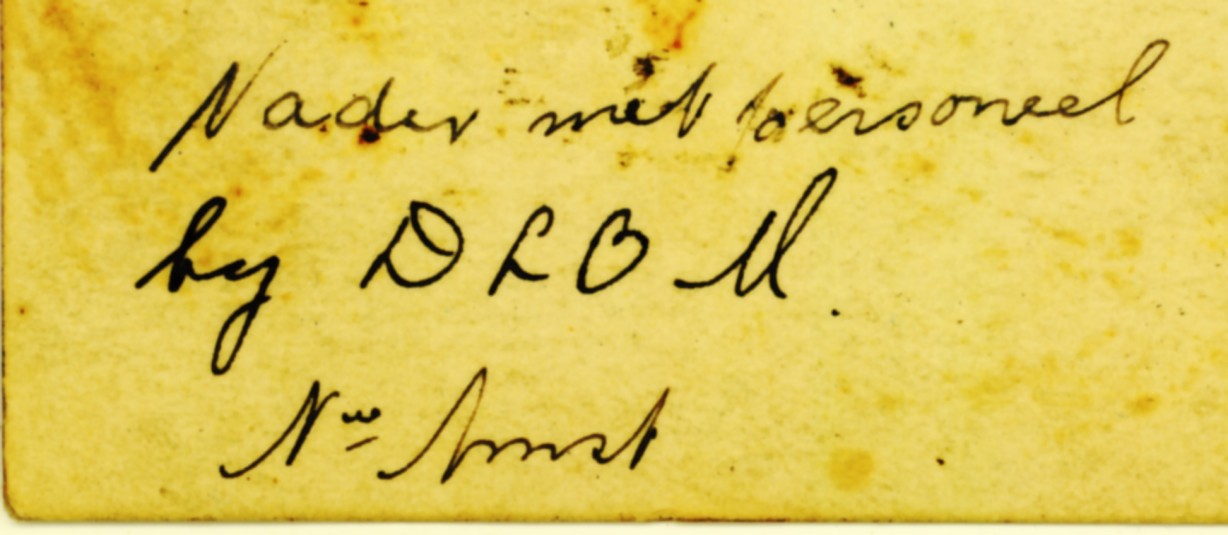 Vader met personeel
by D L O M.
Nw Amst